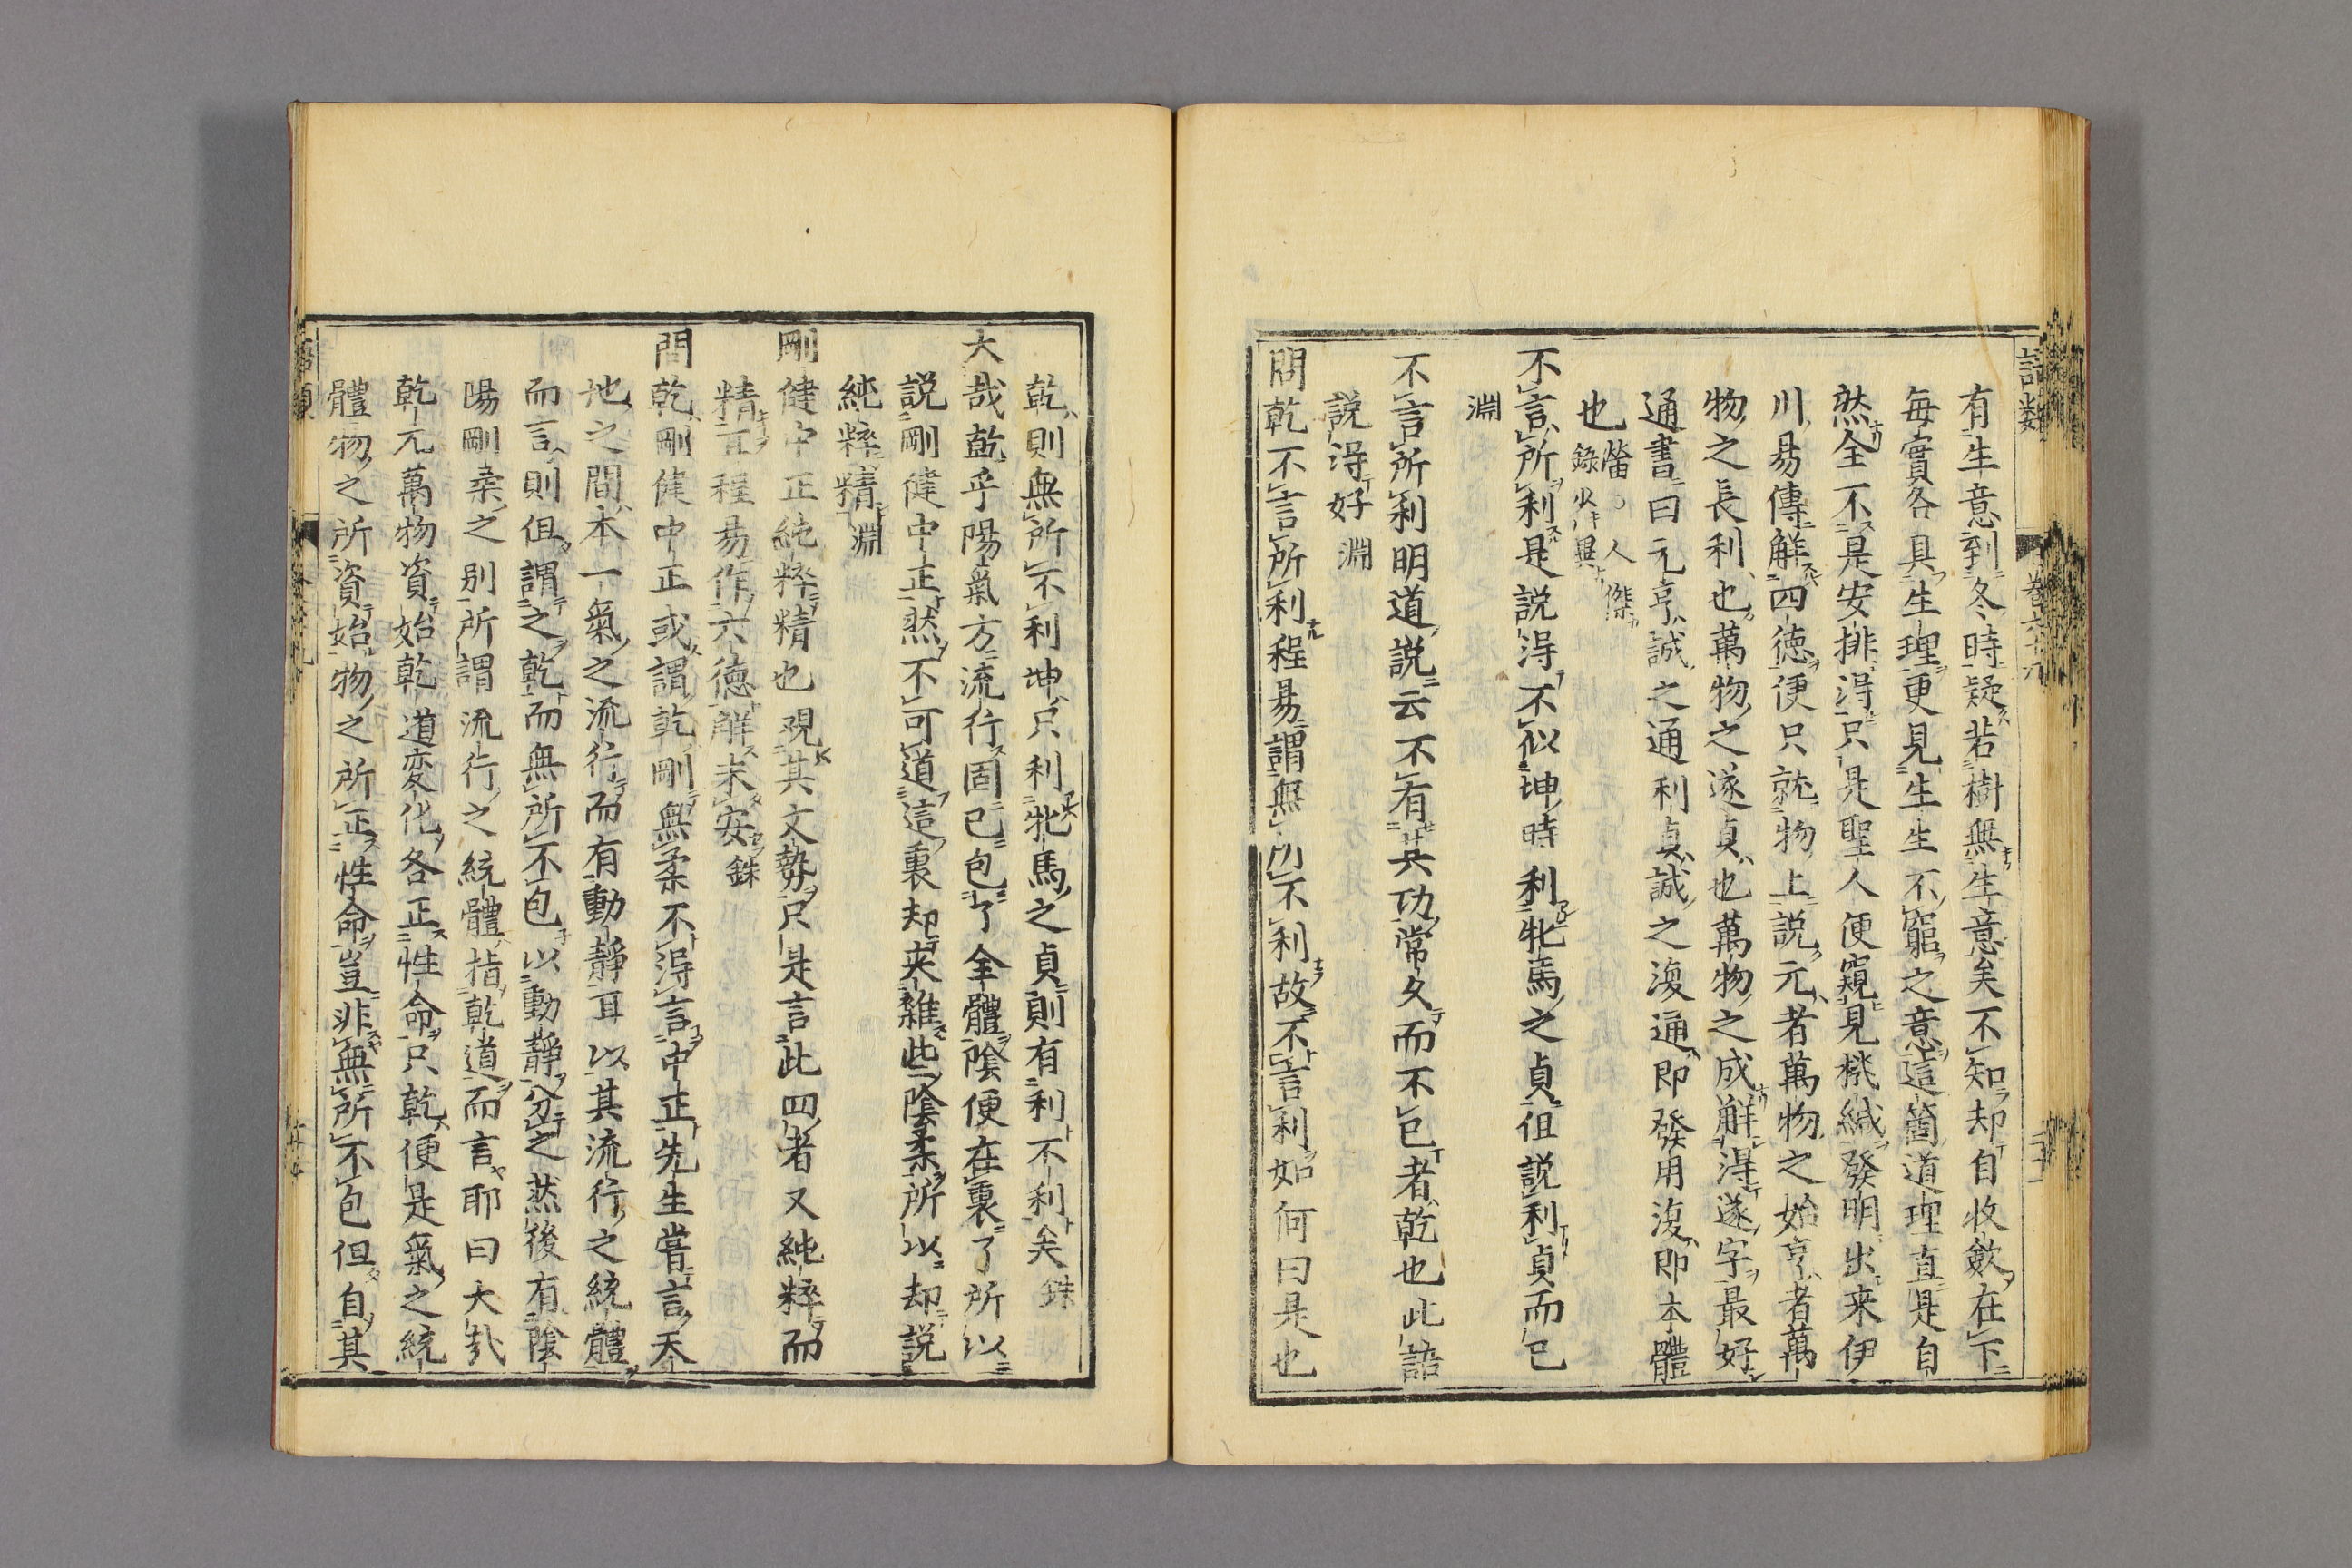 有生意到冬時疑若樹無生意矣不知却自收斂在下
每實各具生理更見生生不窮之意這箇道理直是自
然全不是安排得只是聖人便窺見機緘發明出来伊
川易傳解四徳便只就物上説元者萬物之始亨者萬
物之長利也萬物之遂貞也萬物之成解得遂字最好
通書曰元亨誠之通利貞誠之復通即發用復即本體
也㽦○人傑
錄少異
不言所利是説得不似坤時利牝馬之貞但説利貞而已
淵
不言所利明道説云不有其功常久而不已者乾也此語
説得好淵
問乾不言所利程易謂無所不利故不言利如何曰是也
乾則無所不利坤只利牝馬之貞則有利不利矣銖
大哉乾乎陽氣方流行固已包了全體陰便在裏了所以
説剛健中正然不可道這裏却夹雜些陰柔所以却説
純粹精淵
剛健中正純粹精也觀其文勢只是言此四者又純粹而
精耳程易作六徳解未安銖
問乾剛健中正或謂乾剛無柔不得言中正先生嘗言天
地之間本一氣之流行而有動靜耳以其流行之統體
而言則但謂之乾而無所不包以動靜分之然後有陰
陽剛柔之别所謂流行之統體指乾道而言耶曰大哉
乾元萬物資始乾道変化各正性命只乾便是氣之統
體物之所資始物之所正性命豈非無所不包但自其